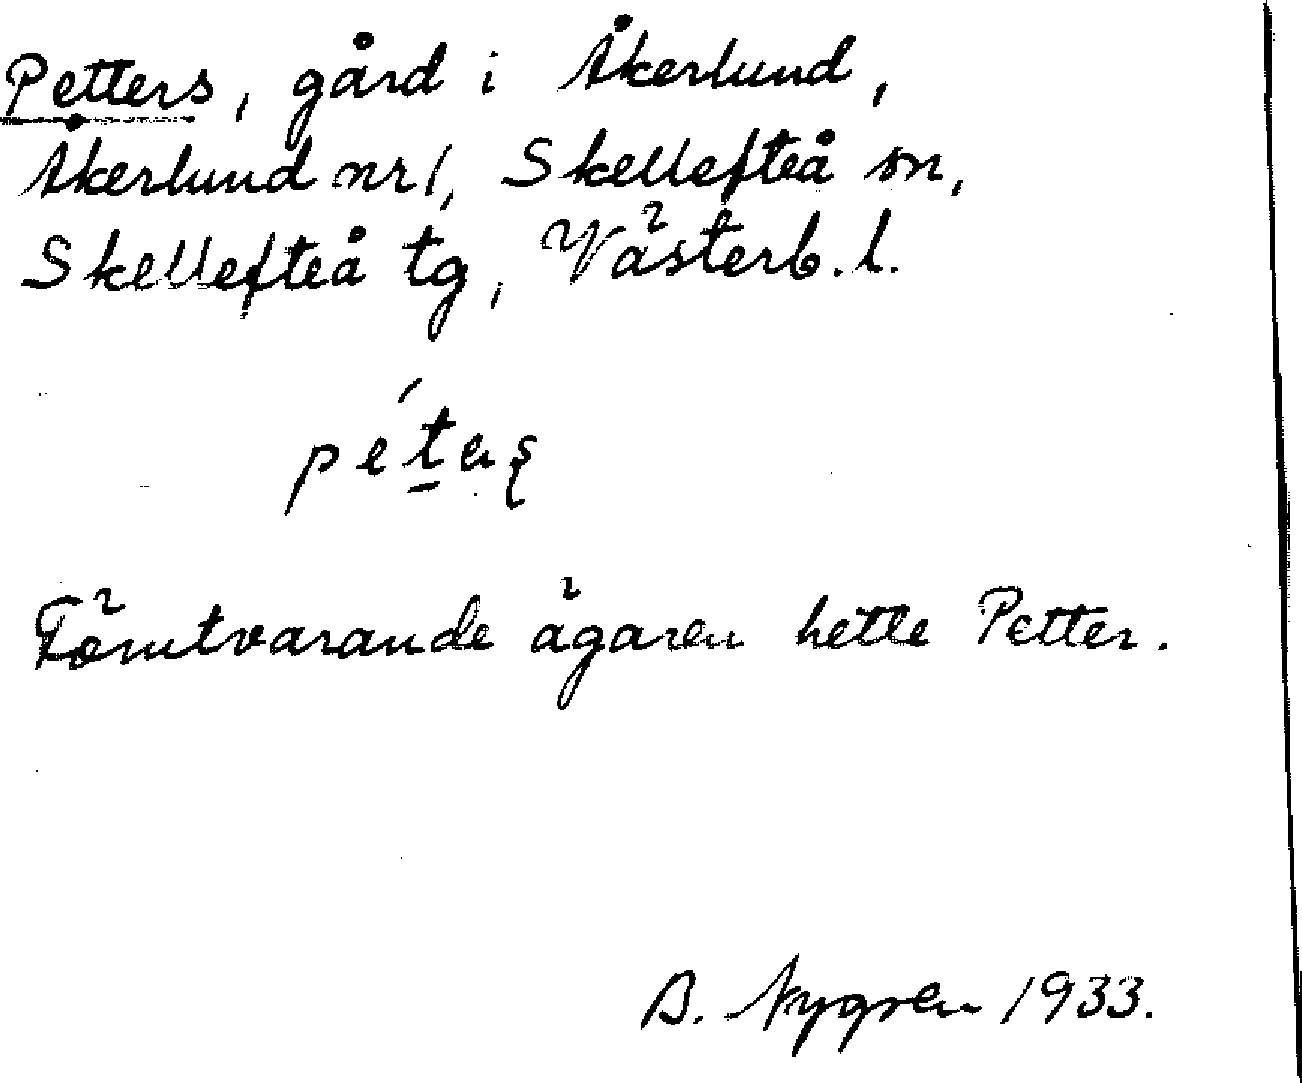 Petters, gård i Åkerlund,
Åkerlund nr 1, Skellefteå sn,
Skellefteå tg, Västerb. l.
Förutvarande ägaren hette Petter.
A. Nygren 1933.